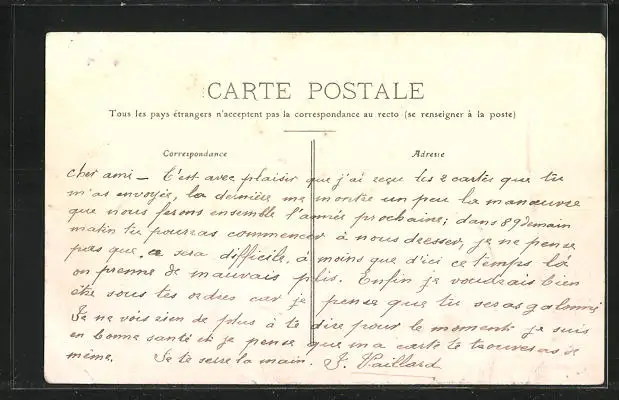 CARTE POSTALE
Tous les pays étrangers n'acceptent pas la correspondance au recto (se renseigner à la poste)
Correspondance
Adresse
cher ami — C'est avec plaisir que j'ai reçu tes 2 cartes que tu
m'as envoyée, la dernière me montre un peu la manœuvre
que nous ferons ensemble l'année prochaine; dans 89 demain
matin tu pourras commencer à nous dresser, je ne pense
pas que ce sera difficile, à moins que d'ici ce temps là
on prenne de mauvais plis. Enfin je voudrais bien
être sous tes ordres car je pense que tu seras galonné
Je ne vois rien de plus à te dire pour le moment je suis
en bonne santé et je pense que ma carte te trouveras de
même. Je te serre la main. J. Vaillard